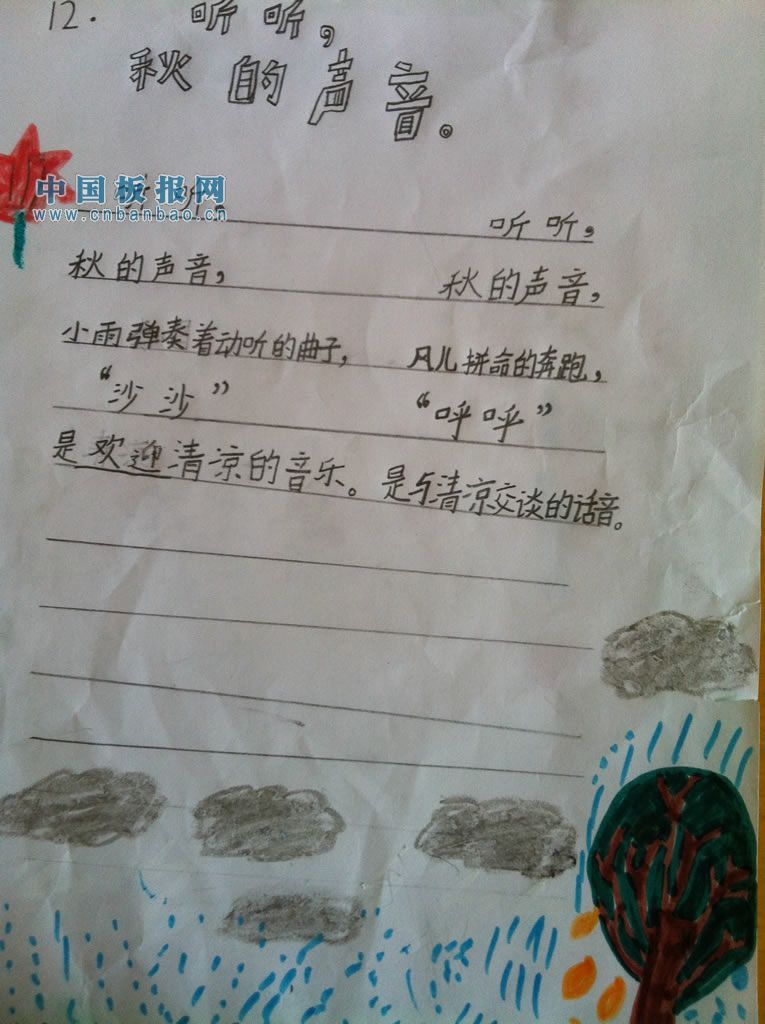 12.
听听，
秋的声音。
中国板报网
www.cnbanbao.cn
听听，
听听，
秋的声音，
秋的声音，
小雨弹奏着动听的曲子，
风儿拼命的奔跑，
“沙沙”
“呼呼”
是欢迎清凉的音乐。
是与清凉交谈的话音。